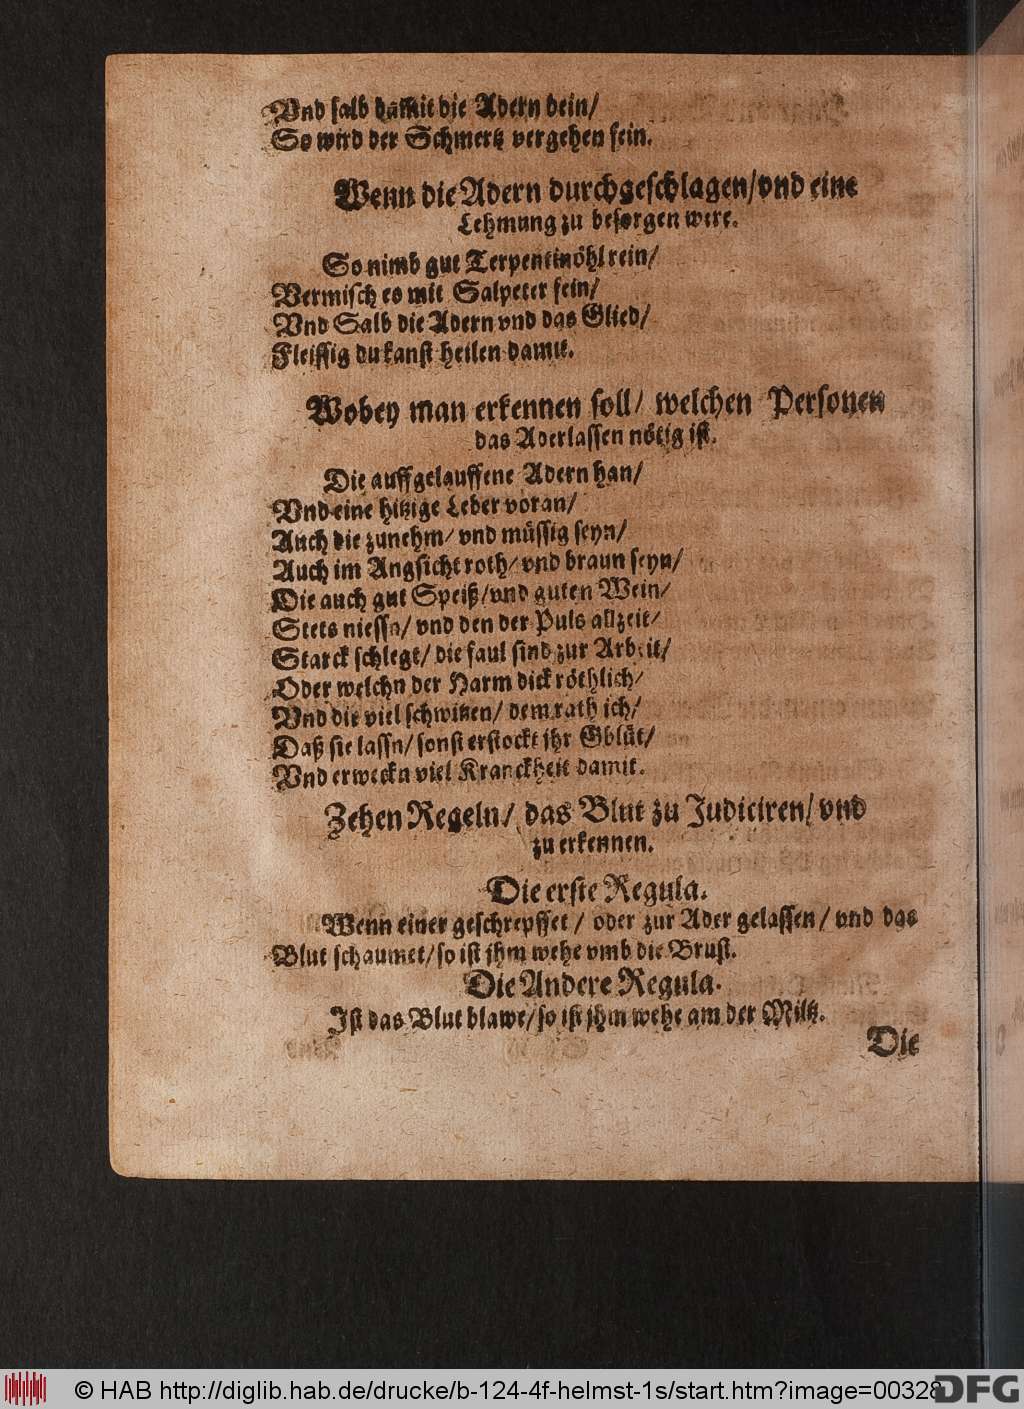 Vnd salb damit die Adern dein/
So wird der Schmertz vergehen fein.
Wenn die Adern durchgeschlagen/vnd eine
Lehmung zu besorgen were.
So nimb gut Terpentinöhl rein/
Vermisch es mit Salpeter fein/
Vnd Salb die Adern vnd das Glied/
Fleissig du kanst heilen damit.
Wobey man erkennen soll/ welchen Personen
das Aderlassen nötig ist.
Die auffgelauffene Adern han/
Vnd eine hitzige Leber voran/
Auch die zunehm/ vnd müssig seyn/
Auch im Angsicht roth/ vnd braun seyn/
Die auch gut Speiß/vnd guten Wein/
Stets niessn/ vnd den der Puls allzeit/
Starck schlegt/ die faul sind zur Arbeit/
Oder welchn der Harm dick röthlich/
Vnd die viel schwitzen/ dem rath ich/
Daß sie lassn/ sonst erstockt jhr Gblüt/
Vnd erweckn viel Kranckheit damit.
Zehen Regeln/ das Blut zu Judiciren/ vnd
zu erkennen.
Die erste Regula.
Wenn einer geschrepffet/ oder zur Ader gelassen/ vnd das
Blut schaumet/so ist jhm wehe vmb die Brust.
Die Andere Regula.
Ist das Blut blawe/so ist jhm wehe am der Miltz.
Die
© HAB http://diglib.hab.de/drucke/b-124-4f-helmst-1s/start.htm?image=00328
DFG